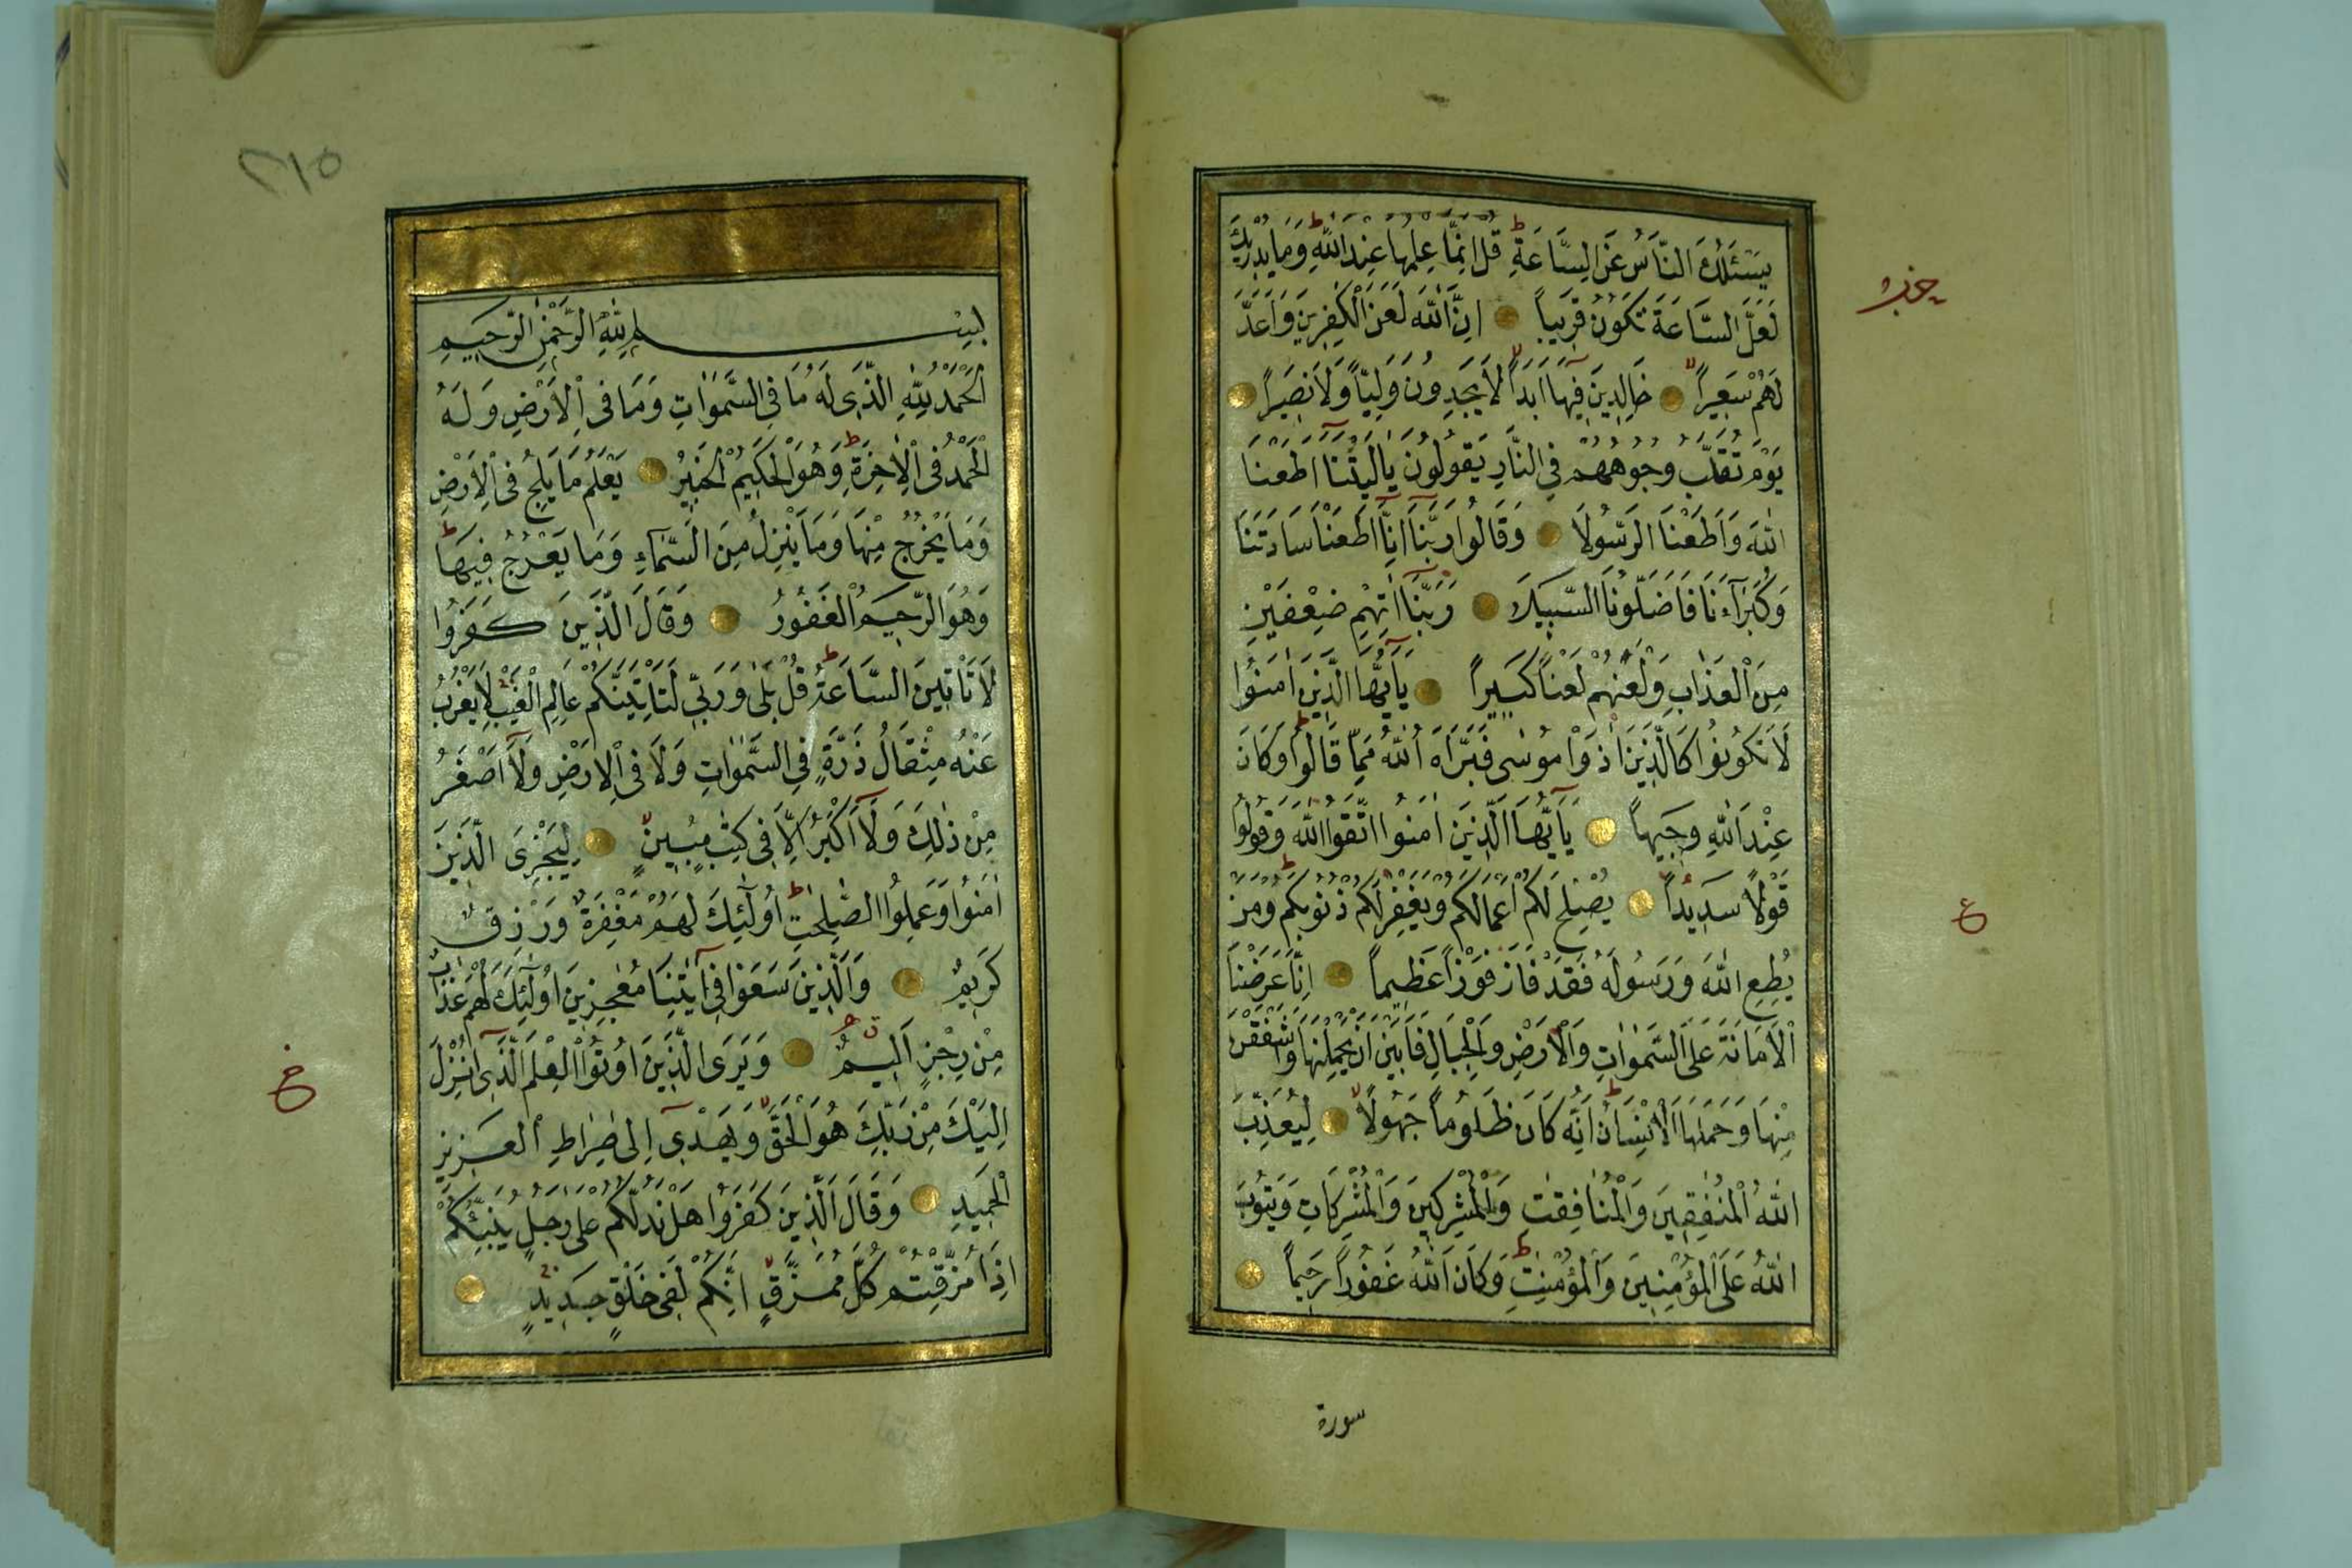 يَسْـَٔلُكَ النَّاسُ عَنِ السَّاعَةِ ط قُلْ اِنَّمَا عِلْمُهَا عِنْدَ اللّٰهِ ط وَمَا يُدْرِيكَ
حزب
لَعَلَّ السَّاعَةَ تَكُونُ قَرِيبًا اِنَّ اللّٰهَ لَعَنَ الْكٰفِرِينَ وَاَعَدَّ
لَهُمْ سَعِيرًا خَالِدِينَ فِيهَا اَبَدًا لَا يَجِدُونَ وَلِيًّا وَلَا نَصِيرًا
يَوْمَ تُقَلَّبُ وُجُوهُهُمْ فِي النَّارِ يَقُولُونَ يَا لَيْتَنَا اَطَعْنَا
اللّٰهَ وَاَطَعْنَا الرَّسُولَا وَقَالُوا رَبَّنَا اِنَّا اَطَعْنَا سَادَتَنَا
وَكُبَرَآءَنَا فَاَضَلُّونَا السَّبِيلَا رَبَّنَا اٰتِهِمْ ضِعْفَيْنِ
مِنَ الْعَذَابِ وَالْعَنْهُمْ لَعْنًا كَبِيرًا يَآ اَيُّهَا الَّذِينَ اٰمَنُوا
لَا تَكُونُوا كَالَّذِينَ اٰذَوْا مُوسٰى فَبَرَّاَهُ اللّٰهُ مِمَّا قَالُوا ط وَكَانَ
عِنْدَ اللّٰهِ وَجِيهًا يَآ اَيُّهَا الَّذِينَ اٰمَنُوا اتَّقُوا اللّٰهَ وَقُولُوا
قَوْلًا سَدِيدًا يُصْلِحْ لَكُمْ اَعْمَالَكُمْ وَيَغْفِرْ لَكُمْ ذُنُوبَكُمْ ط وَمَنْ
ع
يُطِعِ اللّٰهَ وَرَسُولَهُ فَقَدْ فَازَ فَوْزًا عَظِيمًا اِنَّا عَرَضْنَا
الْاَمَانَةَ عَلَى السَّمٰوَاتِ وَالْاَرْضِ وَالْجِبَالِ فَاَبَيْنَ اَنْ يَحْمِلْنَهَا وَاَشْفَقْنَ
مِنْهَا وَحَمَلَهَا الْاِنْسَانُ ط اِنَّهُ كَانَ ظَلُومًا جَهُولًا لِيُعَذِّبَ
اللّٰهُ الْمُنٰفِقِينَ وَالْمُنَافِقٰتِ وَالْمُشْرِكِينَ وَالْمُشْرِكَاتِ وَيَتُوبَ
اللّٰهُ عَلَى الْمُؤْمِنِينَ وَالْمُؤْمِنٰتِ ط وَكَانَ اللّٰهُ غَفُورًا رَحِيمًا
سورة
٢١٥
بِسْمِ اللّٰهِ الرَّحْمٰنِ الرَّحِيمِ
اَلْحَمْدُ لِلّٰهِ الَّذِي لَهُ مَا فِي السَّمٰوَاتِ وَمَا فِي الْاَرْضِ وَلَهُ
الْحَمْدُ فِي الْاٰخِرَةِ ط وَهُوَ الْحَكِيمُ الْخَبِيرُ يَعْلَمُ مَا يَلِجُ فِي الْاَرْضِ
وَمَا يَخْرُجُ مِنْهَا وَمَا يَنْزِلُ مِنَ السَّمَآءِ وَمَا يَعْرُجُ فِيهَا ط
وَهُوَ الرَّحِيمُ الْغَفُورُ وَقَالَ الَّذِينَ كَفَرُوا
لَا تَاْتِينَا السَّاعَةُ ط قُلْ بَلٰى وَرَبِّي لَتَاْتِيَنَّكُمْ عَالِمِ الْغَيْبِ لَا يَعْزُبُ
عَنْهُ مِثْقَالُ ذَرَّةٍ فِي السَّمٰوَاتِ وَلَا فِي الْاَرْضِ وَلَآ اَصْغَرُ
مِنْ ذٰلِكَ وَلَآ اَكْبَرُ اِلَّا فِي كِتٰبٍ مُبِينٍ لِيَجْزِيَ الَّذِينَ
اٰمَنُوا وَعَمِلُوا الصّٰلِحٰتِ ط اُولٰٓئِكَ لَهُمْ مَغْفِرَةٌ وَرِزْقٌ
كَرِيمٌ وَالَّذِينَ سَعَوْا فِي اٰيَاتِنَا مُعٰجِزِينَ اُولٰٓئِكَ لَهُمْ عَذَابٌ
مِنْ رِجْزٍ اَلِيمٌ وَيَرَى الَّذِينَ اُوتُوا الْعِلْمَ الَّذِي اُنْزِلَ
اِلَيْكَ مِنْ رَبِّكَ هُوَ الْحَقَّ وَيَهْدِي اِلٰى صِرَاطِ الْعَزِيزِ
الْحَمِيدِ وَقَالَ الَّذِينَ كَفَرُوا هَلْ نَدُلُّكُمْ عَلٰى رَجُلٍ يُنَبِّئُكُمْ
اِذَا مُزِّقْتُمْ كُلَّ مُمَزَّقٍ اِنَّكُمْ لَفِي خَلْقٍ جَدِيدٍ